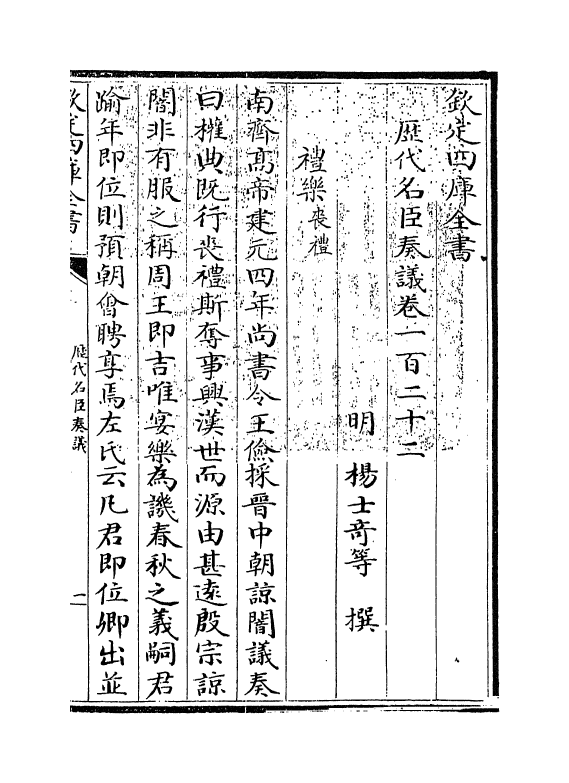 欽定四庫全書
歴代名臣奏議卷一百二十二
明 楊士竒等 撰
禮樂喪禮
南齊髙帝建元四年尚書令王儉採晉中朝諒闇議奏
曰權典既行喪禮斯奪事興漢世而源由甚逺殷宗諒
闇非有服之稱周王即吉唯宴樂為譏春秋之義嗣君
踰年即位則預朝會聘享焉左氏云凡君即位卿出並
欽定四庫全書
歴代名臣奏議